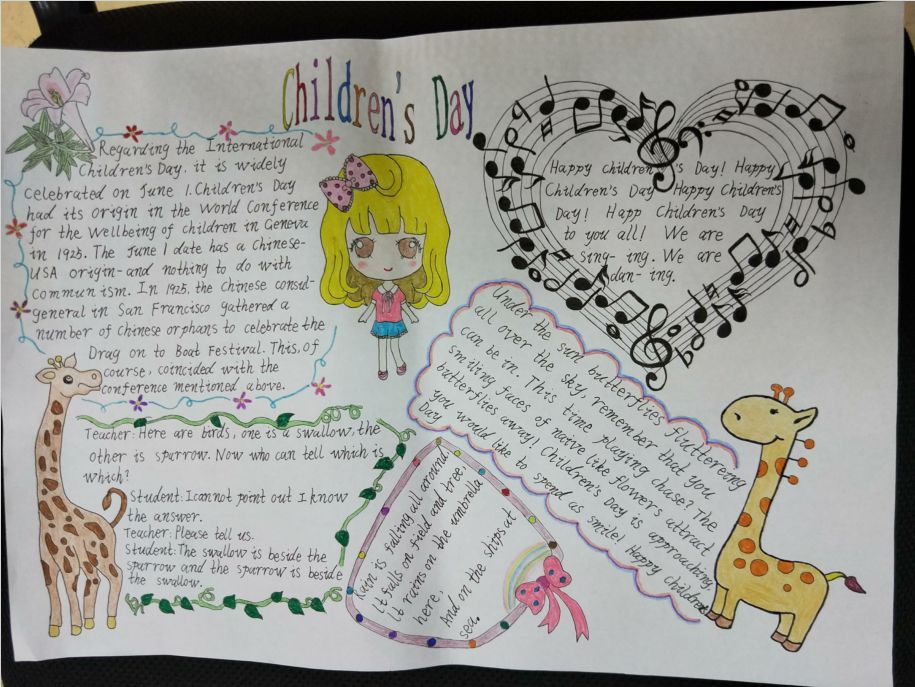 Children's Day
Regarding the International
Children's Day, it is widely
celebrated on June 1. Children's Day
had its origin in the World Conference
for the Wellbeing of children in Geneva
in 1925. The June 1 date has a Chinese-
USA origin- and nothing to do with
commun ism. In 1925, the Chinese consul-
general in San Francisco gathered a
number of Chinese orphans to celebrate the
Drag on to Boat Festival. This, of
course, coincided with the
conference mentioned above.
Happy children's Day! Happy
Children's Day Happy Children's
Day! Happ Children's Day
to you all! We are
sing- ing. We are
dan- ing.
Under the sun butterflies fluttereong
all over the sky, remember that you
can be in. This time playing chase? The
smiling faces of naive like flowers attract
butterflies away! Children's Day is approaching,
you would like to spend as smile! Happy Children's
Day
Teacher: Here are birds, one is a swallow, the
other is sparrow. Now who can tell which is
which?
Student: I cannot point out I know
the answer.
Teacher: Please tell us.
Student: The swallow is beside the
sparrow and the sparrow is beside
the swallow.
Rain is falling all around,
It falls on field and tree,
It rains on the umbrella
here,
And on the ships at
sea.